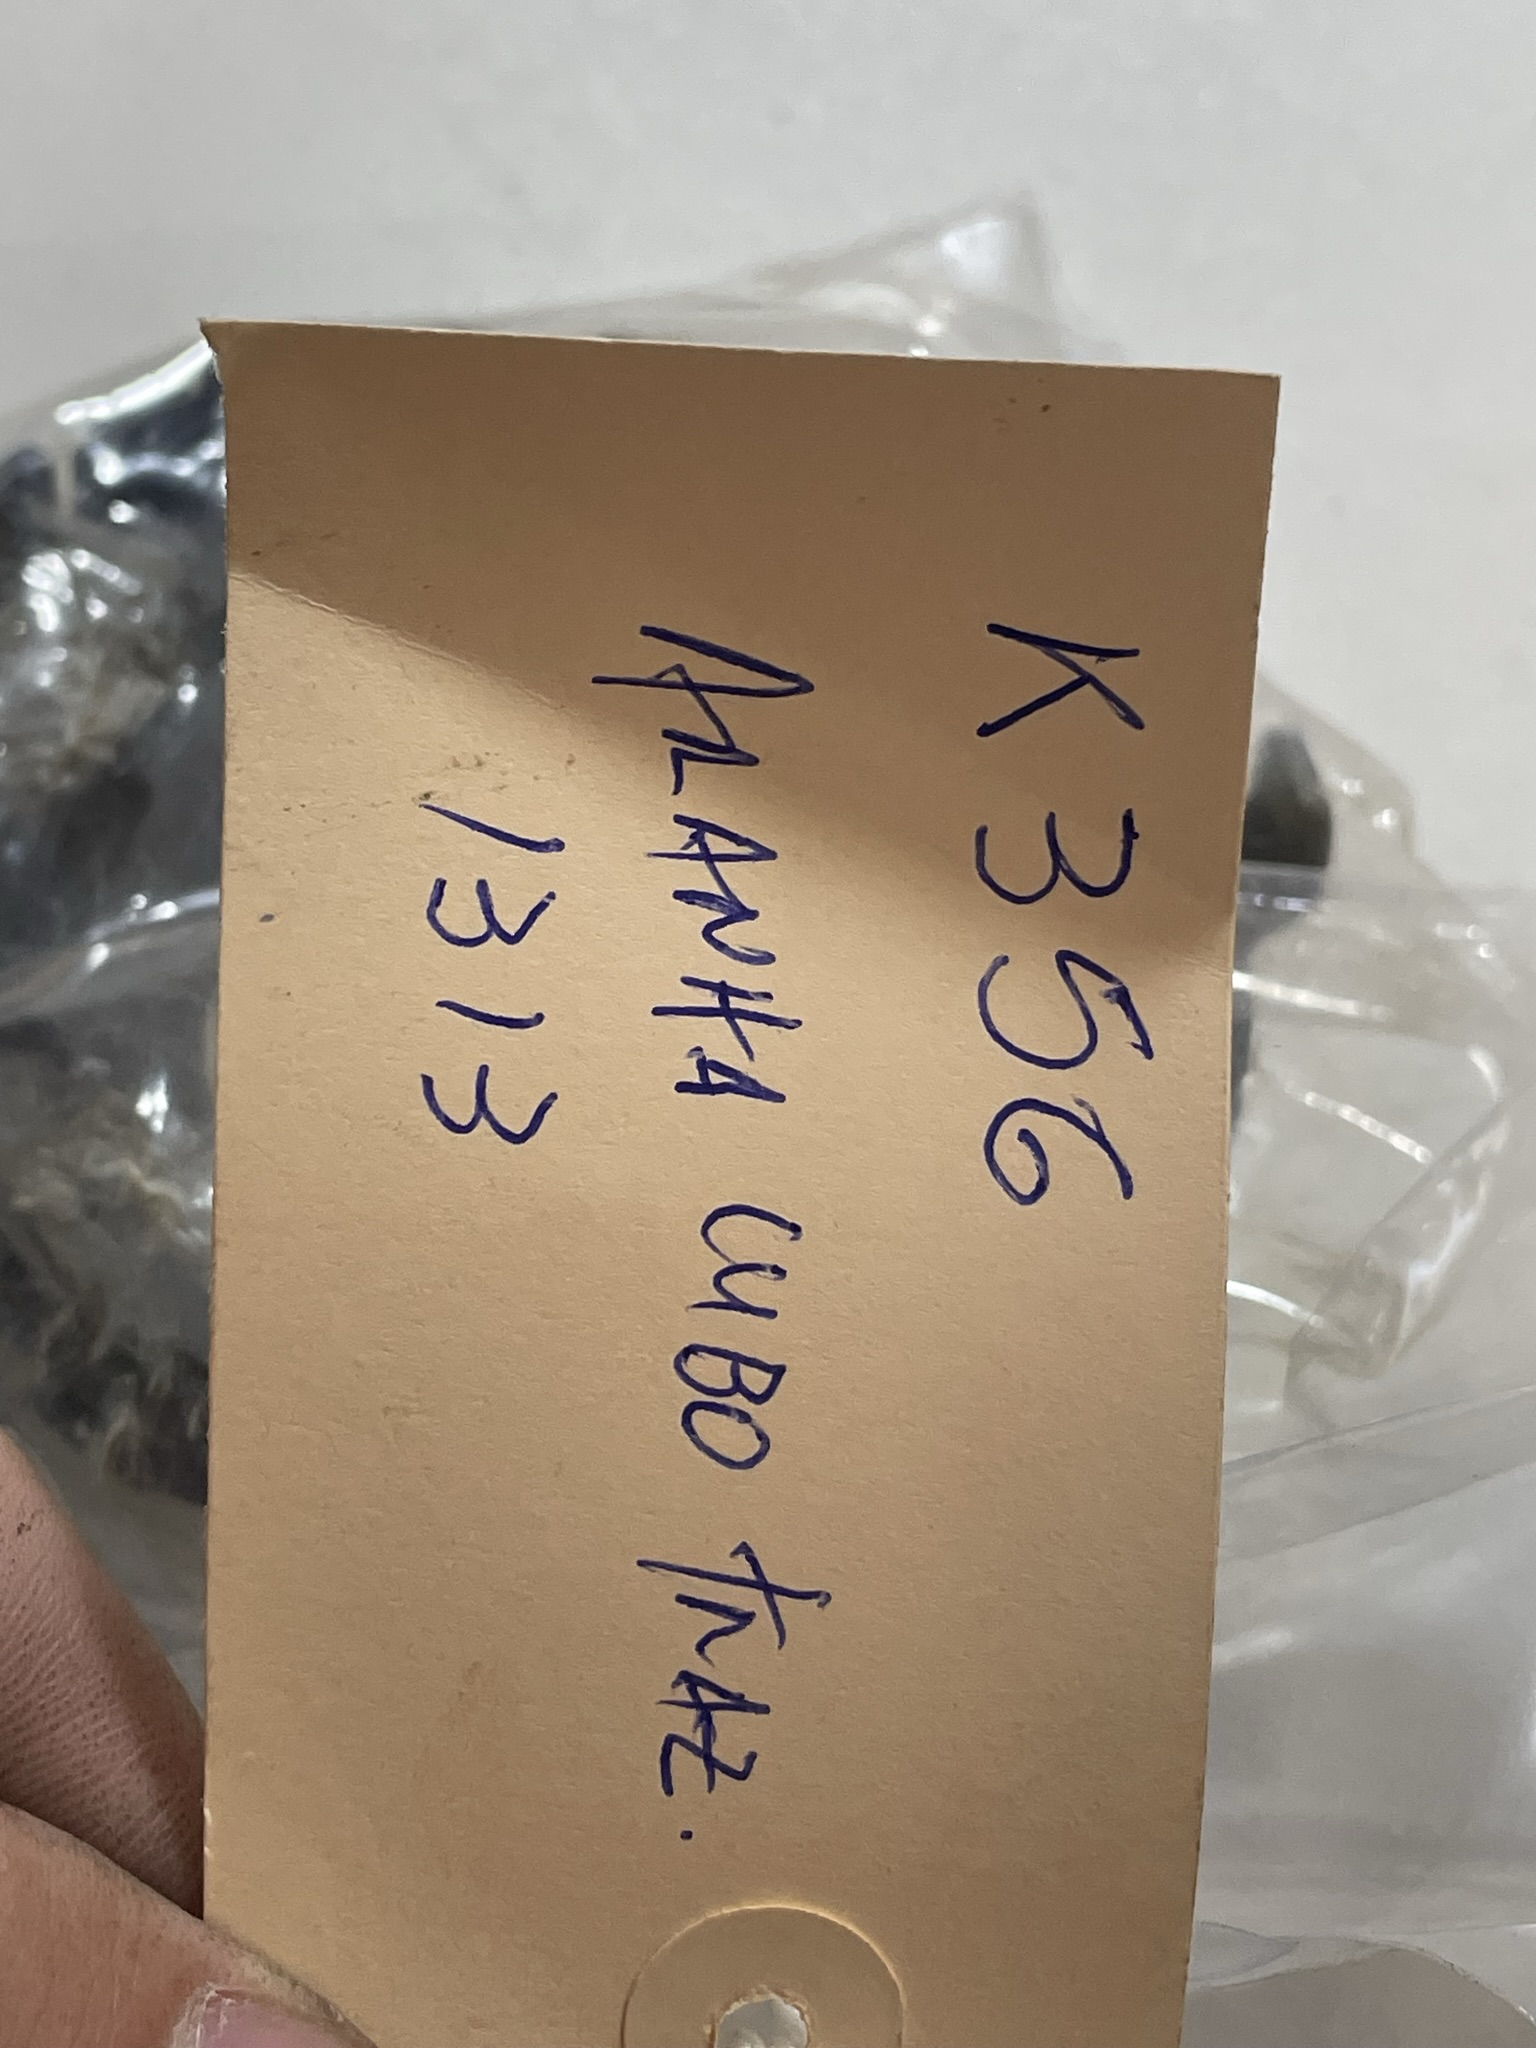 K356
ARANHA CUBO TRAZ.
1313